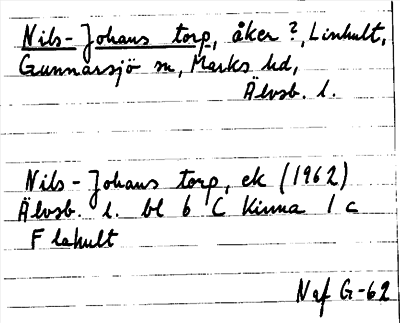 Nils-Johans torp, åker?, Linhult,
Gunnarsjö sn, Marks hd,
Älvsb. l.
Nils-Johans torp, ek (1962)
Älvsb. l. bl 6 C Kinna 1 c
F lahult
Naf G-62